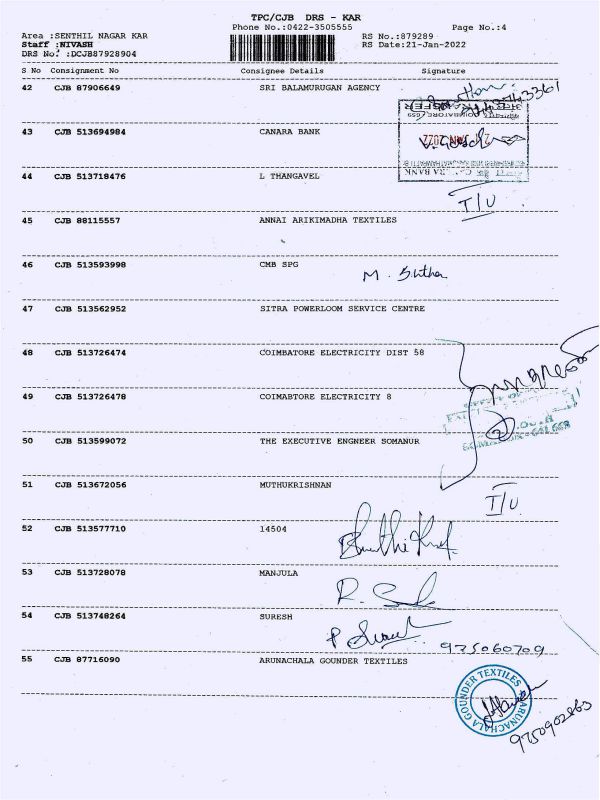 TPC/CJB DRS - KAR
Phone No.:0422-3505555 Page No.:4
Area :SENTHIL NAGAR KAR RS No.:879289
Staff :NIVASH RS Date:21-Jan-2022
DRS No. :DCJB87928904
S No Consignment No Consignee Details Signature
42 CJB 87906649 SRI BALAMURUGAN AGENCY
43 CJB 513694984 CANARA BANK
44 CJB 513718476 L THANGAVEL
I/U
45 CJB 88115557 ANNAI ARIKIMADHA TEXTILES
46 CJB 513593998 CMB SPG
47 CJB 513562952 SITRA POWERLOOM SERVICE CENTRE
48 CJB 513726474 COIMBATORE ELECTRICITY DIST 58
49 CJB 513726478 COIMABTORE ELECTRICITY 8
50 CJB 513599072 THE EXECUTIVE ENGNEER SOMANUR
51 CJB 513672056 MUTHUKRISHNAN
I/U
52 CJB 513577710 14504
53 CJB 513728078 MANJULA
54 CJB 513748264 SURESH
55 CJB 87716090 ARUNACHALA GOUNDER TEXTILES
ARUNACHALA GOUNDER TEXTILES